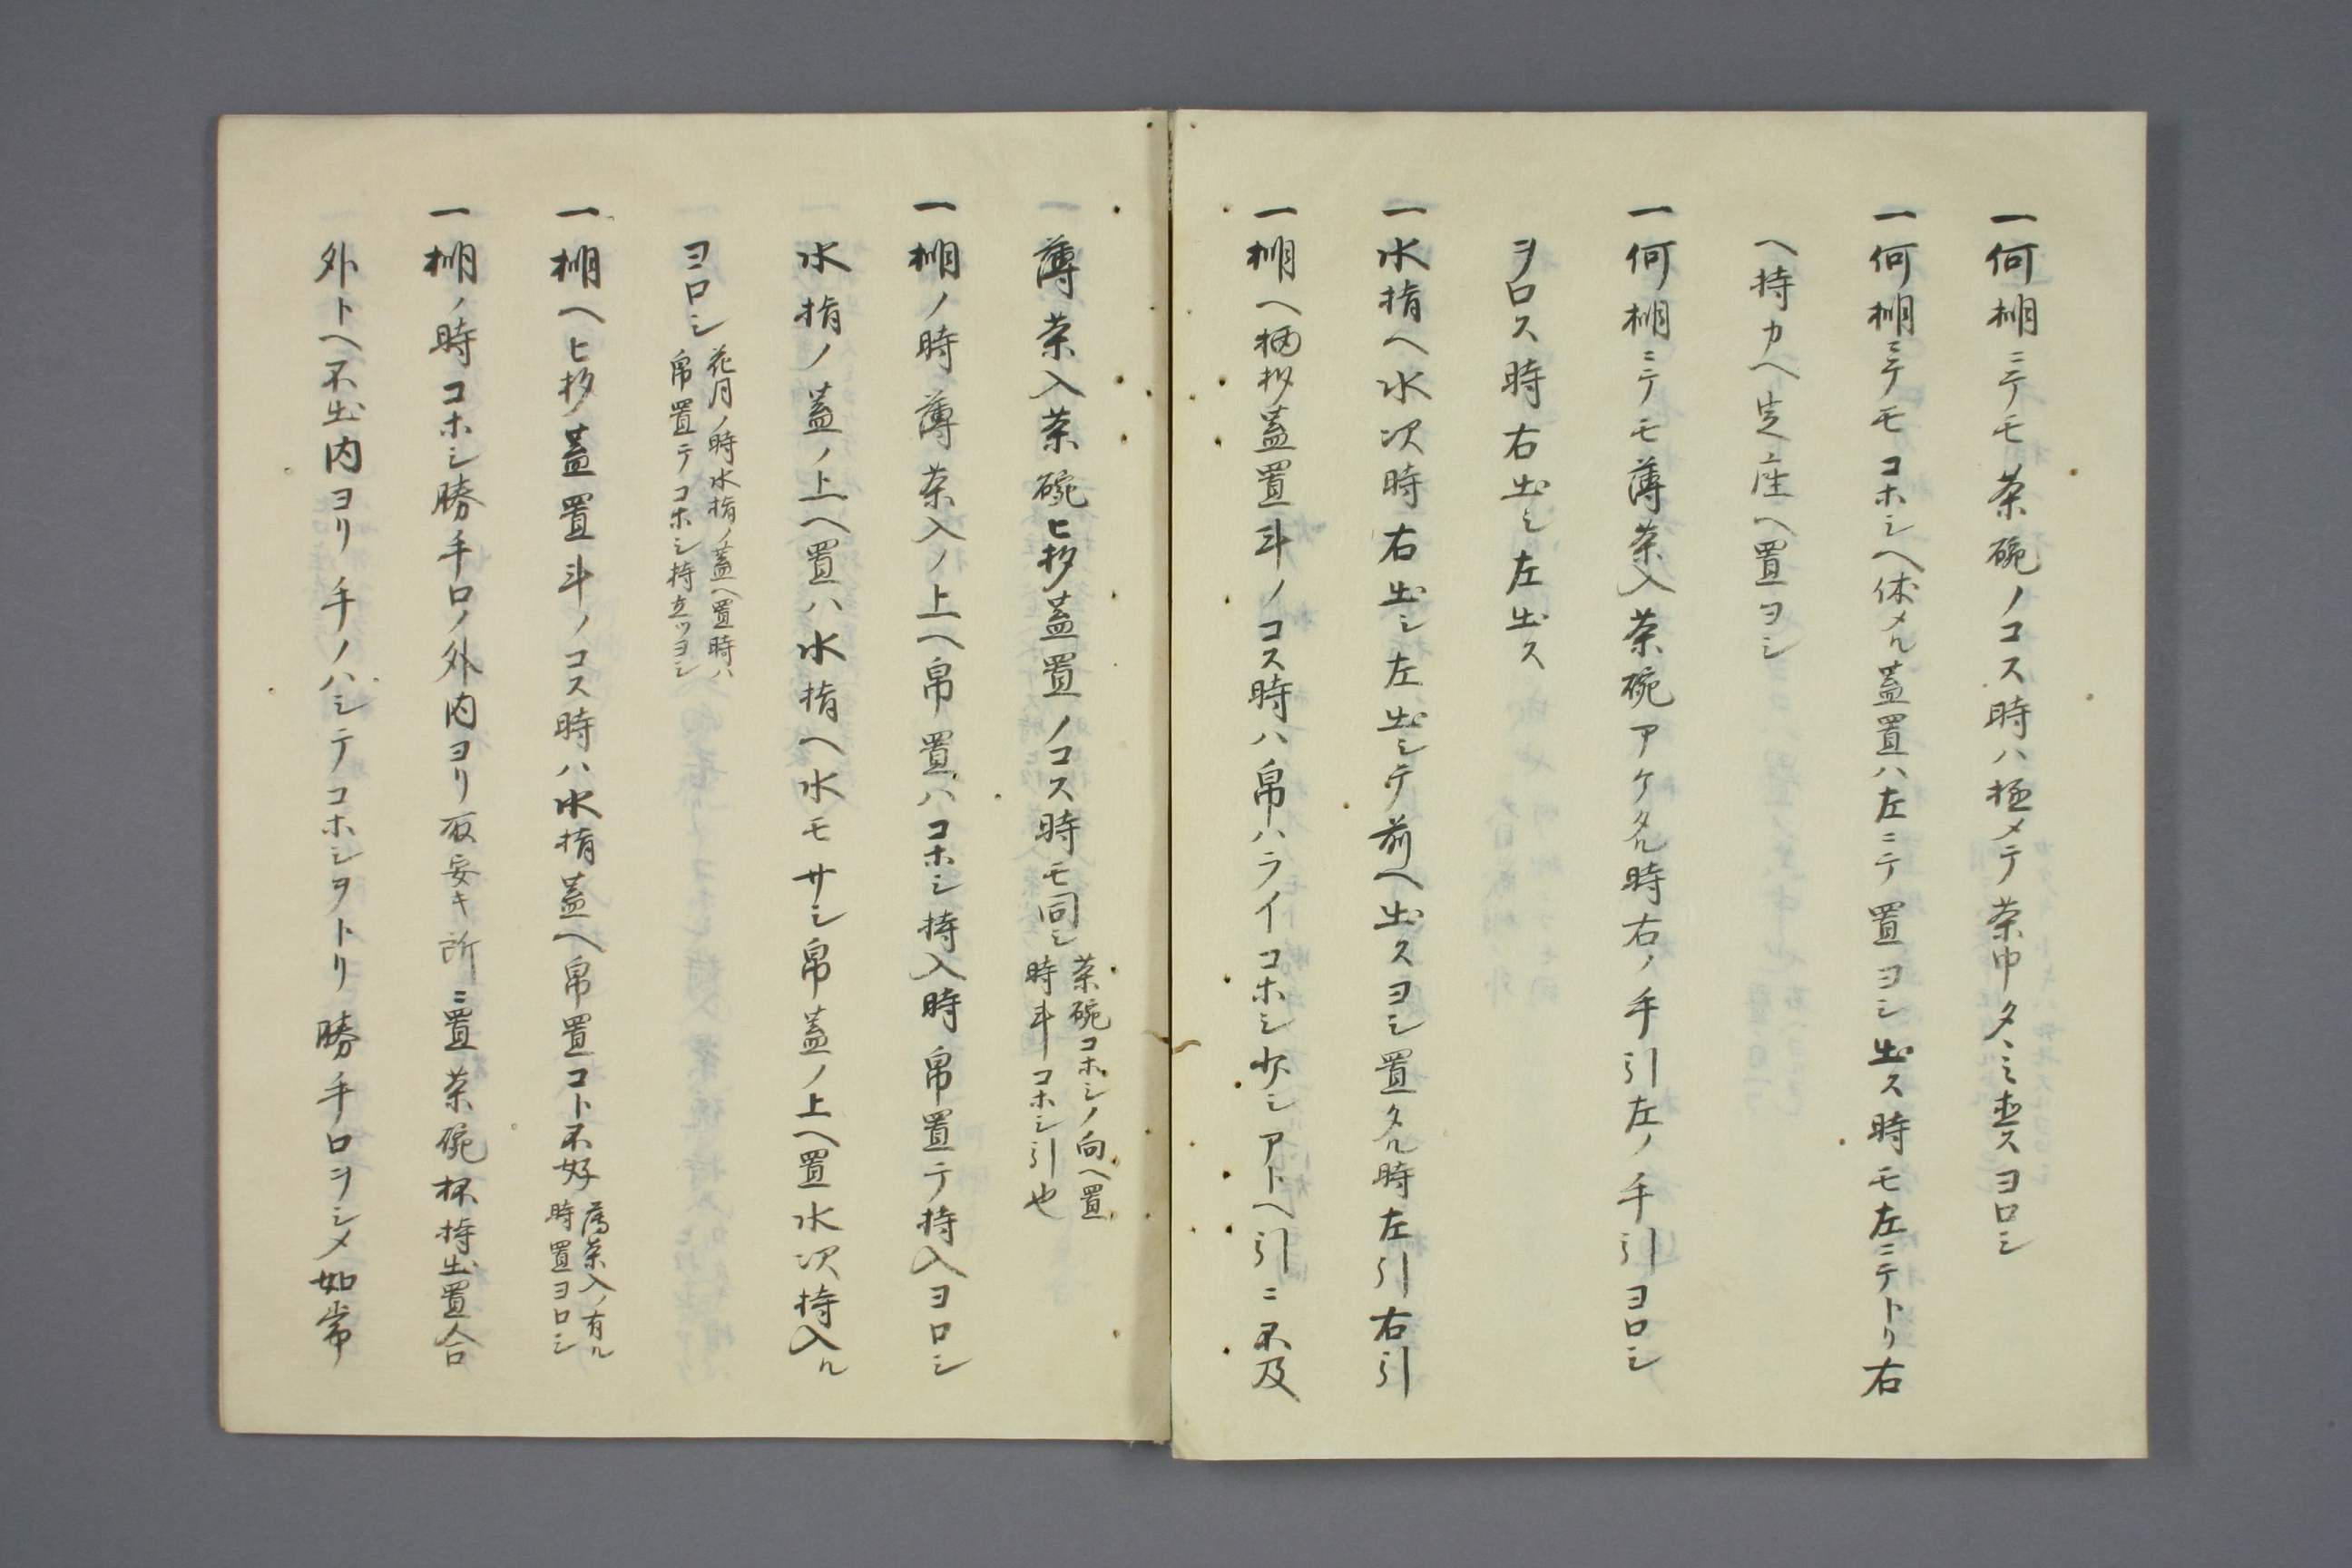 一何棚ニテモ茶碗ノコス時ハ極メテ茶巾タヽミ直スヨロシ
一何棚ニテモコホシヘ仗メル蓋置ハ左ニテ置ヨシ出ス時モ左ニテトリ右
ヘ持カヘ定座ヘ置ヨシ
一何棚ニテモ薄茶入茶碗アケタル時右ノ手引左ノ手引ヨロシ
ヲロス時右出シ左出ス
一水指ヘ水次時右出シ左出シテ前ヘ出スヨシ置タル時左引右引
一棚ヘ柄杓蓋置斗ノコス時ハ帛ハライコホシ少シアトヘ引ニ不及
薄茶入茶碗ヒ杓蓋置ノコス時モ同シ
茶碗コホシノ向ヘ置
時斗コホシ引也
一棚ノ時薄茶入ノ上ヘ帛置ハコホシ持入時帛置テ持入ヨロシ
水指ノ蓋ノ上ヘ置ハ水指ヘ水モサシ帛蓋ノ上ヘ置水次持入ル
ヨロシ
花月ノ時水指ノ蓋ヘ置時ハ
帛置テコホシ持立ツヨシ
一棚ヘヒ杓蓋置斗ノコス時ハ水指蓋ヘ帛置コト不好
薄茶入ノ有ル
時置ヨロシ
一棚ノ時コホシ勝手口ノ外内ヨリ取安キ所ニ置茶碗杯持出置合
外トヘ不出内ヨリ手ノハシテコホシヲトリ勝手口ヲシメ如常